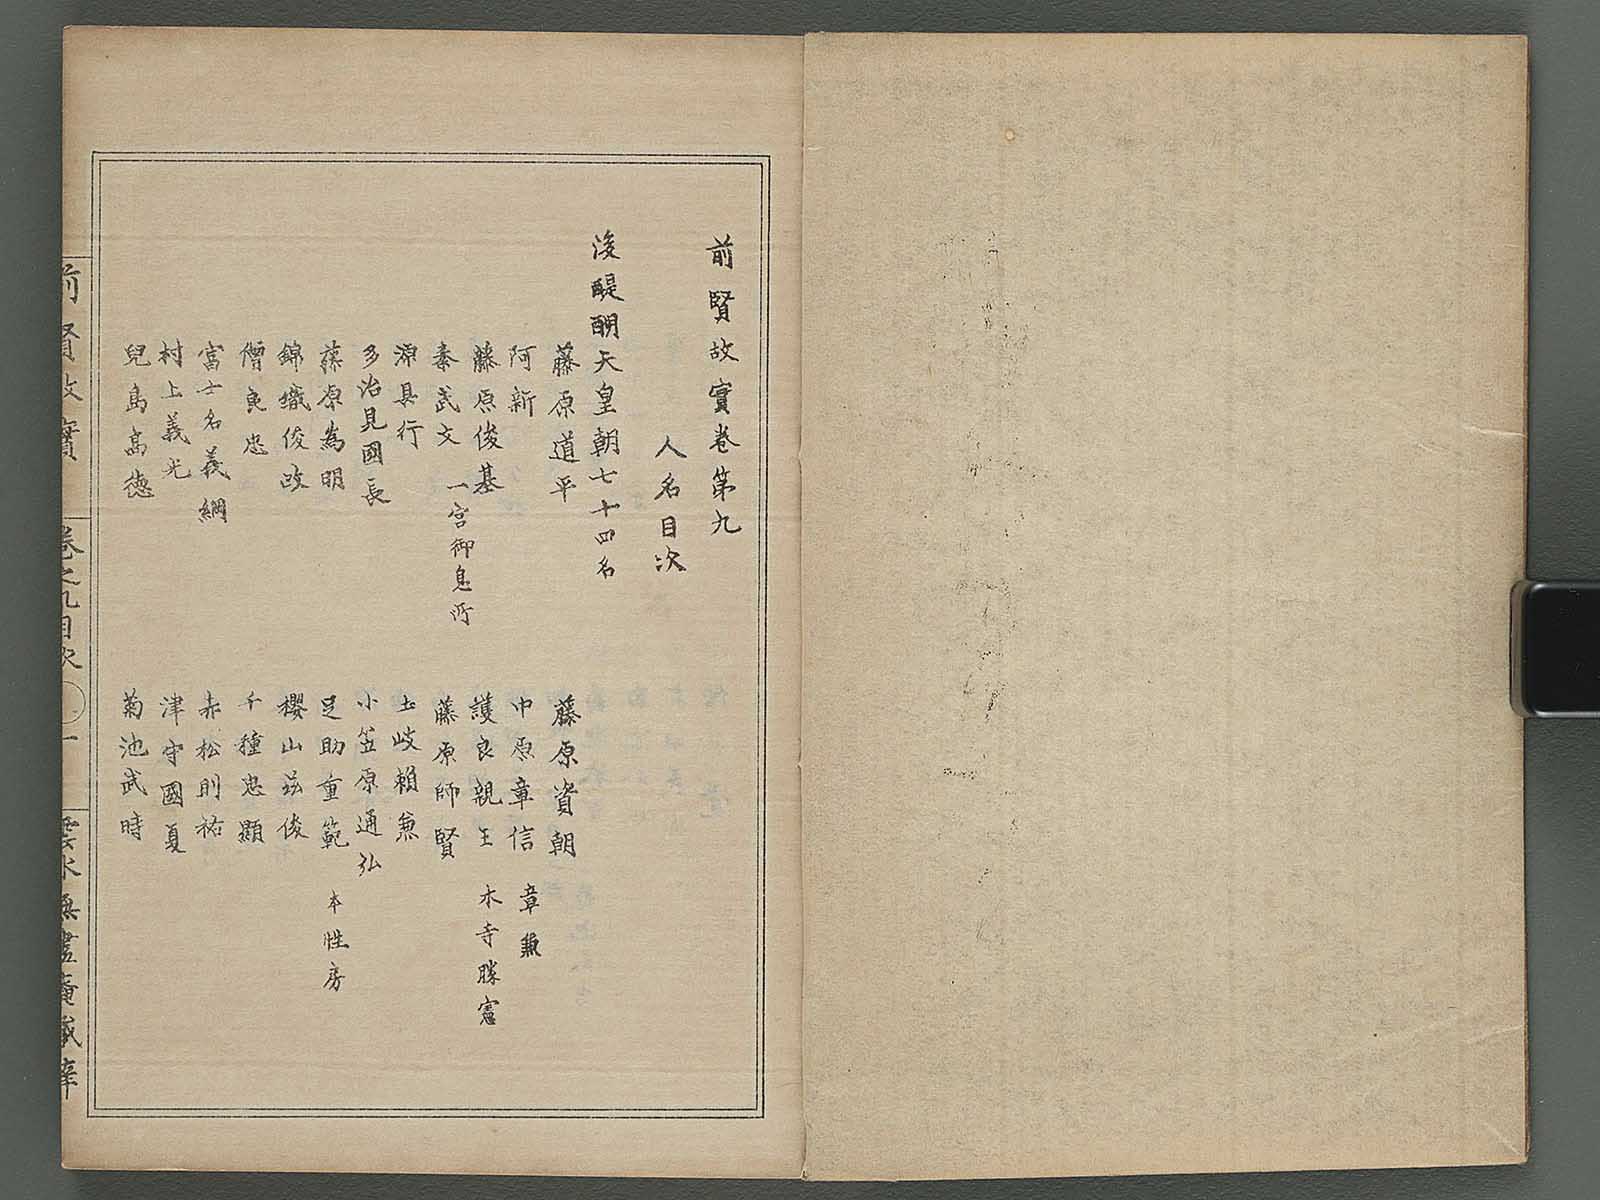 前賢故實卷第九
人名目次
後醍醐天皇朝七十四名
藤原道平　藤原資朝
阿新　中原章信　章兼
藤原俊基　護良親王　木寺勝憲
秦武文　一宮御息所　藤原師賢
源具行　土岐賴兼
多治見國長　小笠原通弘
藤原為明　足助重範　本性房
錦織俊政　櫻山茲俊
僧良忠　千種忠顯
富士名義綱　赤松則祐
村上義光　津守國夏
兒島高德　菊池武時
前賢故實　卷之九目次　一　雲水無盡庵藏梓